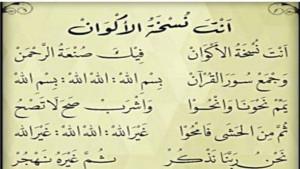 اَنْتَ نُسْخَةُ الْأَكْوَانْ
اَنْتَ نُسْخَةُ الْأَكْوَانْ فِيكَ صَنْعَةُ الرَّحْمٰنْ
وَجَمْعُ سُوَرِ الْقُرْآنْ بِسْمِ اللهْ : اللهْ اللهْ : بِسْمِ اللهْ
يَمِّ نَحْوَنَا وَانْحُوا وَاشْرَبْ صَحِّ لَا تَصْحُ
ثُمَّ مِنَ الْحَشَى فَامْحُوا غَيْرَ اللهْ : اللهْ اللهْ : غَيْرَ اللهْ
نَحْنُ رَبَّنَا نَذْكُرْ ثُمَّ غَيْرَهُ نَهْجُرْ